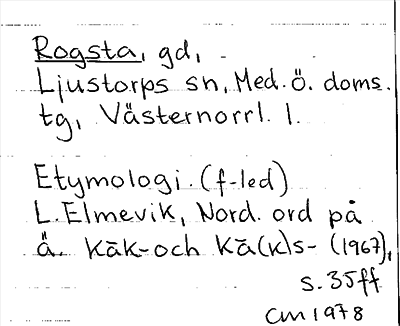 Rogsta, gd,
Ljustorps sn, Med. ö. doms.
tg, Västernorrl. l.
Etymologi. (f-led)
L. Elmevik, Nord. ord på
ä. kāk- och kā(k)s- (1967),
s. 35ff
CM 1978